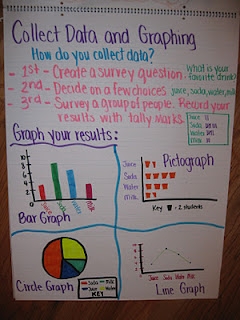 Collect Data and Graphing
How do you collect data?
- 1st - Create a survey question. what is your favorite drink?
- 2nd - Decide on a few choices juice, soda, water, milk
- 3rd - Survey a group of people. Record your
results with tally marks.
Juice
Soda
Water
Milk
Graph your results:
10
8
6
4
2
0
Juice
Soda
Water
Milk
Bar Graph
Pictograph
Juice
Soda
Water
Milk
Key = 2 students
Circle Graph
Soda Milk
Juice Water
KEY
Juice Soda Water Milk
Line Graph